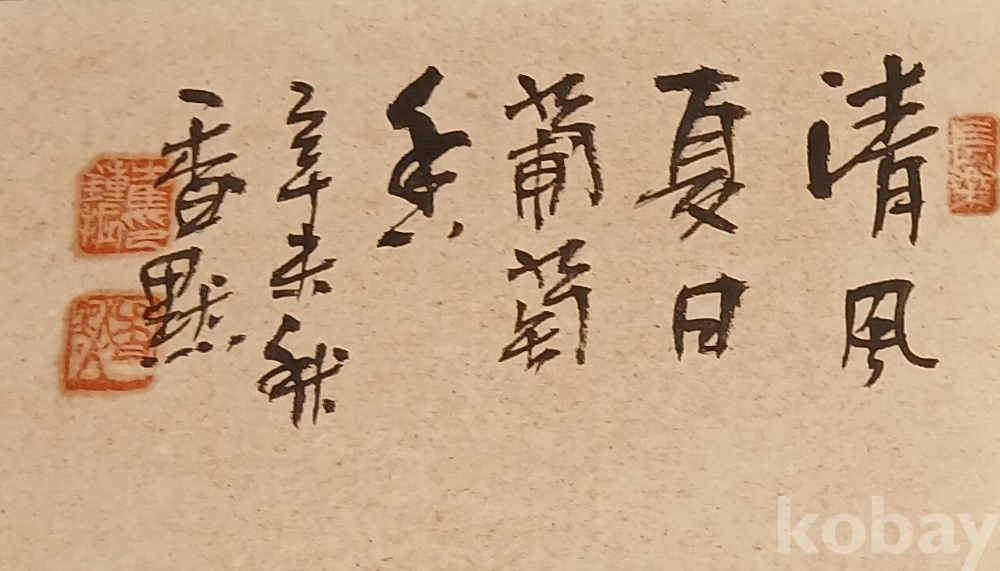 清風
夏日
葡萄
香
辛未秋
一香默
kobay